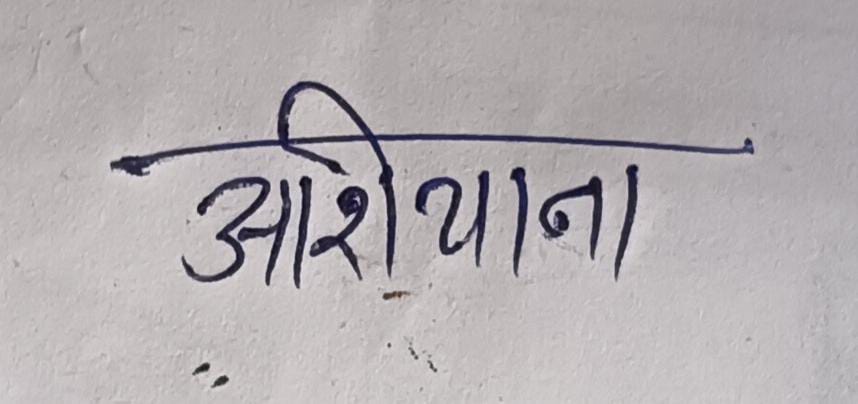 आशियाना